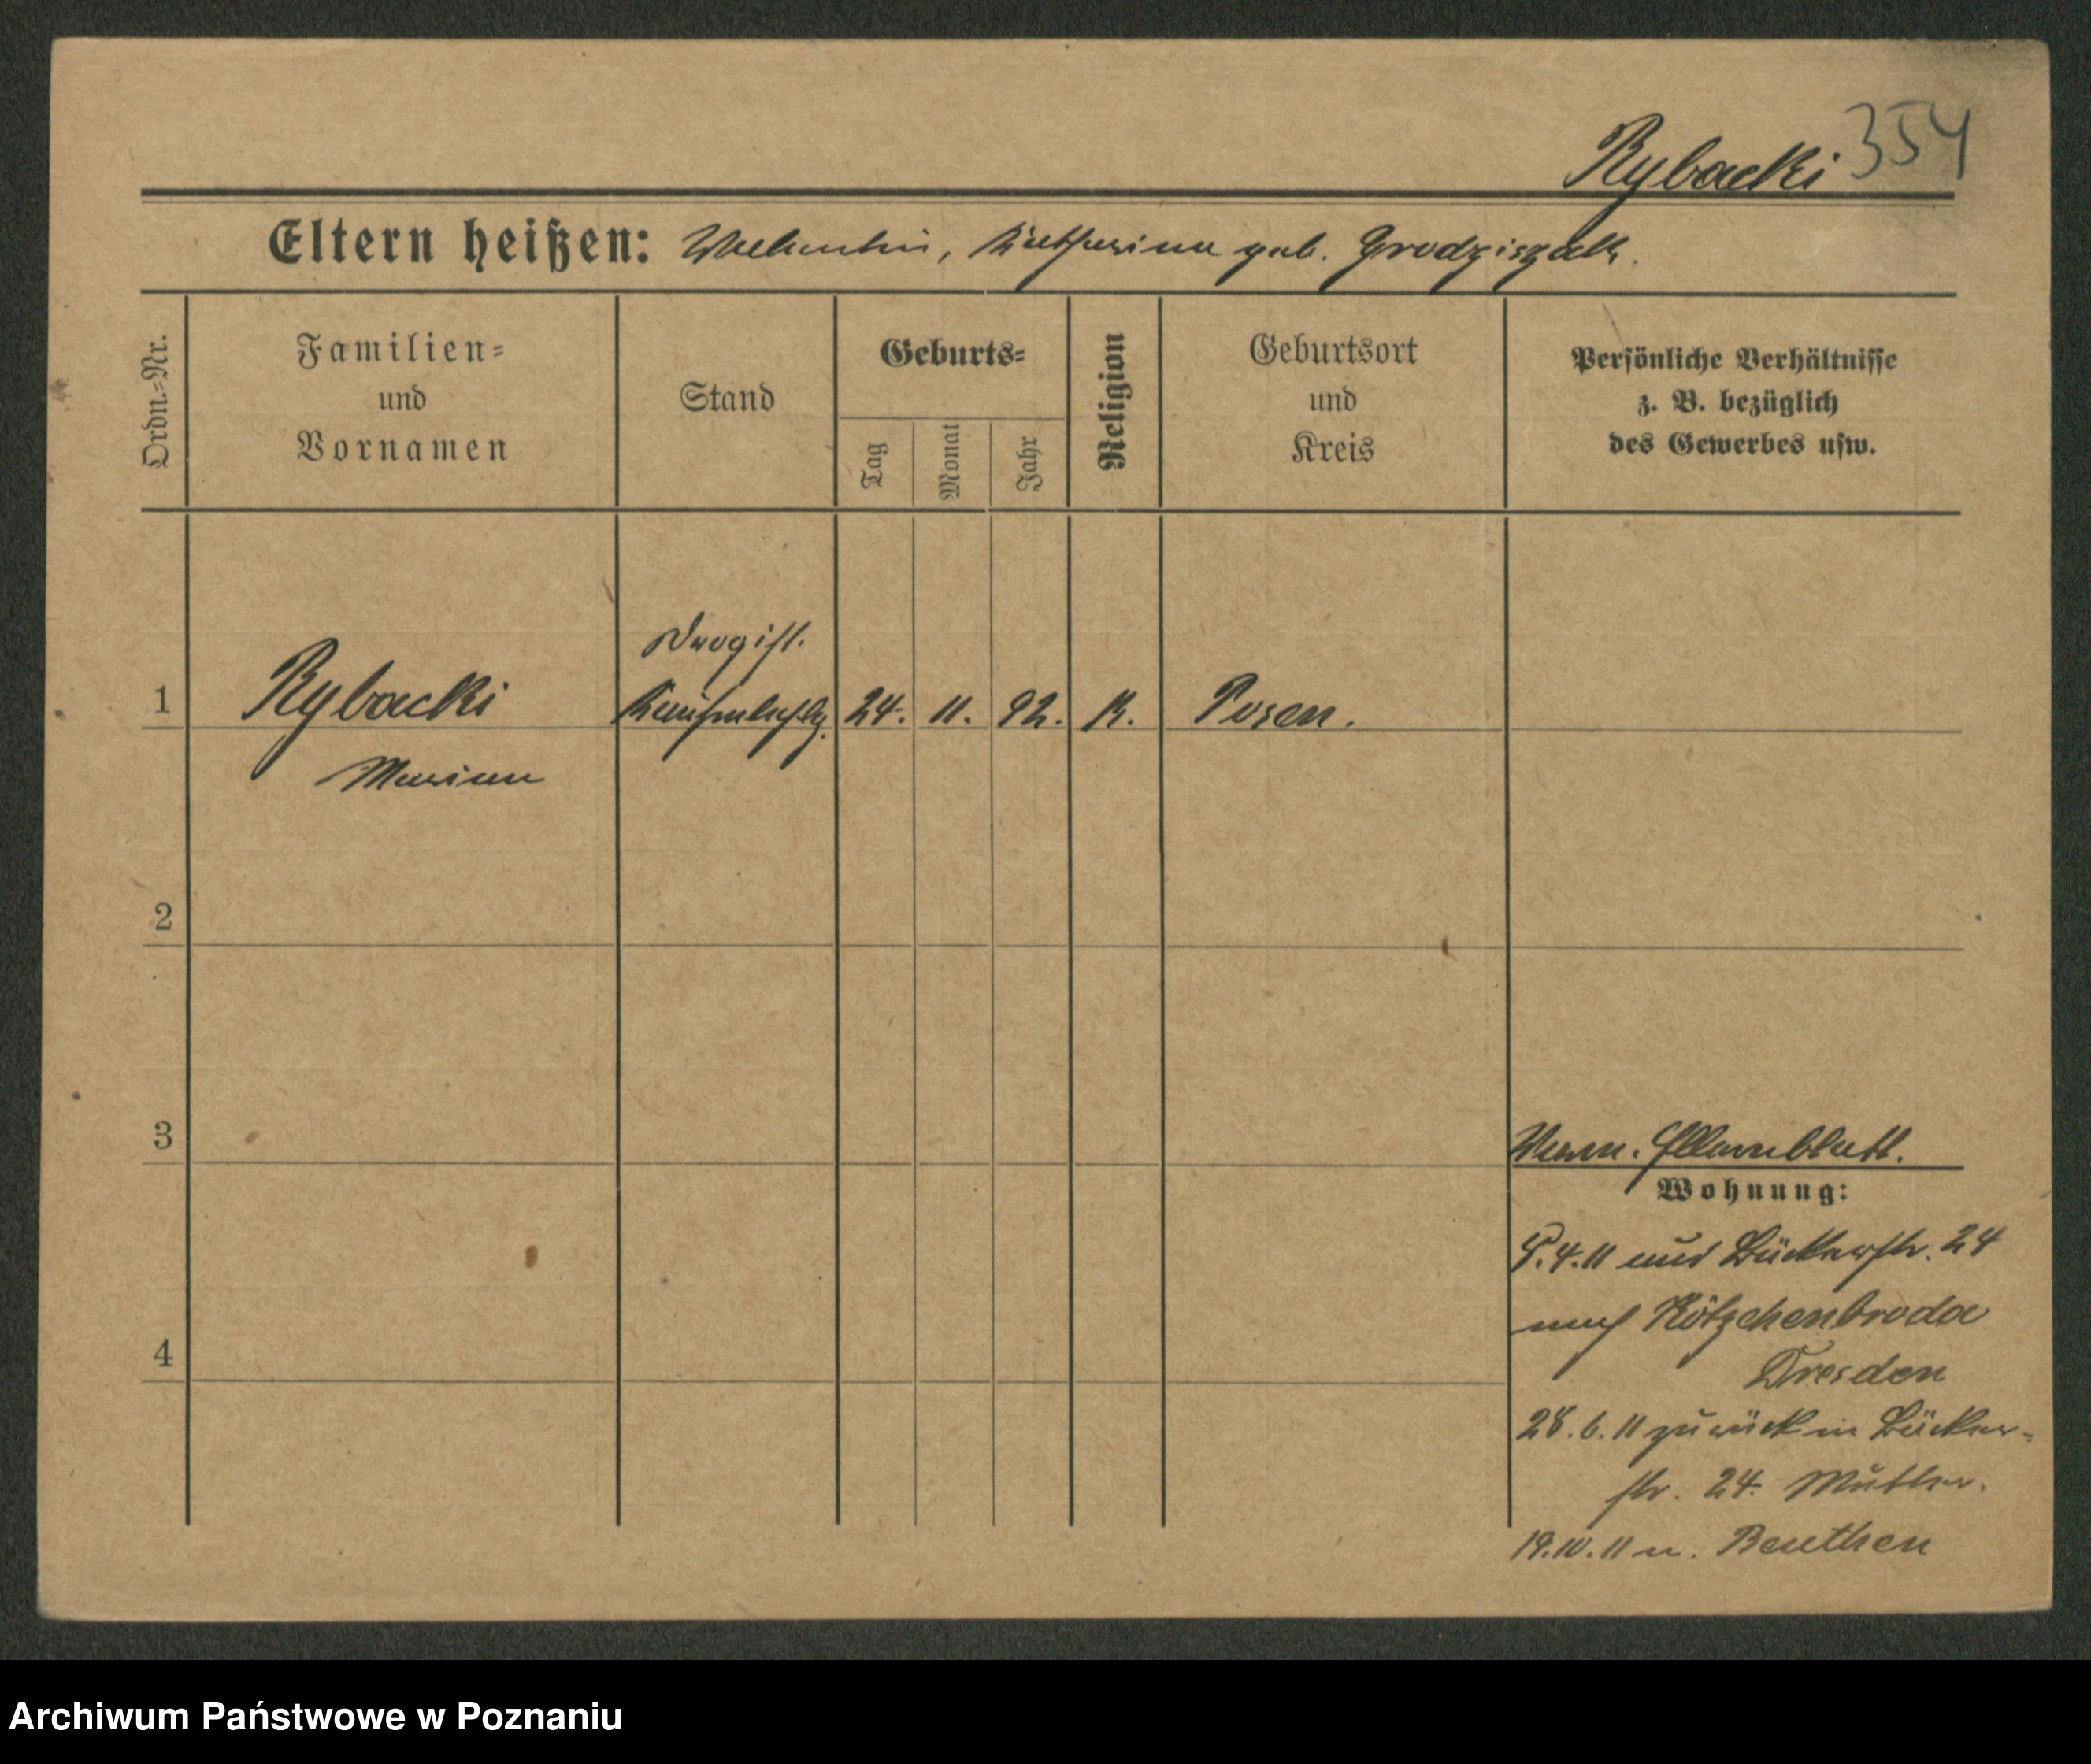 Rybacki 354
Eltern heißen: Valentin, Katharina geb. Grodziszak.
Ordn.-Nr.
Familien-
und
Vornamen
Stand
Geburts-
Tag
Monat
Jahr
Religion
Geburtsort
und
Kreis
Persönliche Verhältnisse
z. B. bezüglich
des Gewerbes usw.
Drogist.
1 Rybacki 24. 11. 92. K. Posen.
Marian
2
3
Wohnung:
4.11 aus Bäckerstr. 24
nach Kötzchenbroda
4
Dresden
28.6.11 zurück in Bäcker-
str. 24. Mutter.
19.10.11 n. Beuthen
Archiwum Państwowe w Poznaniu